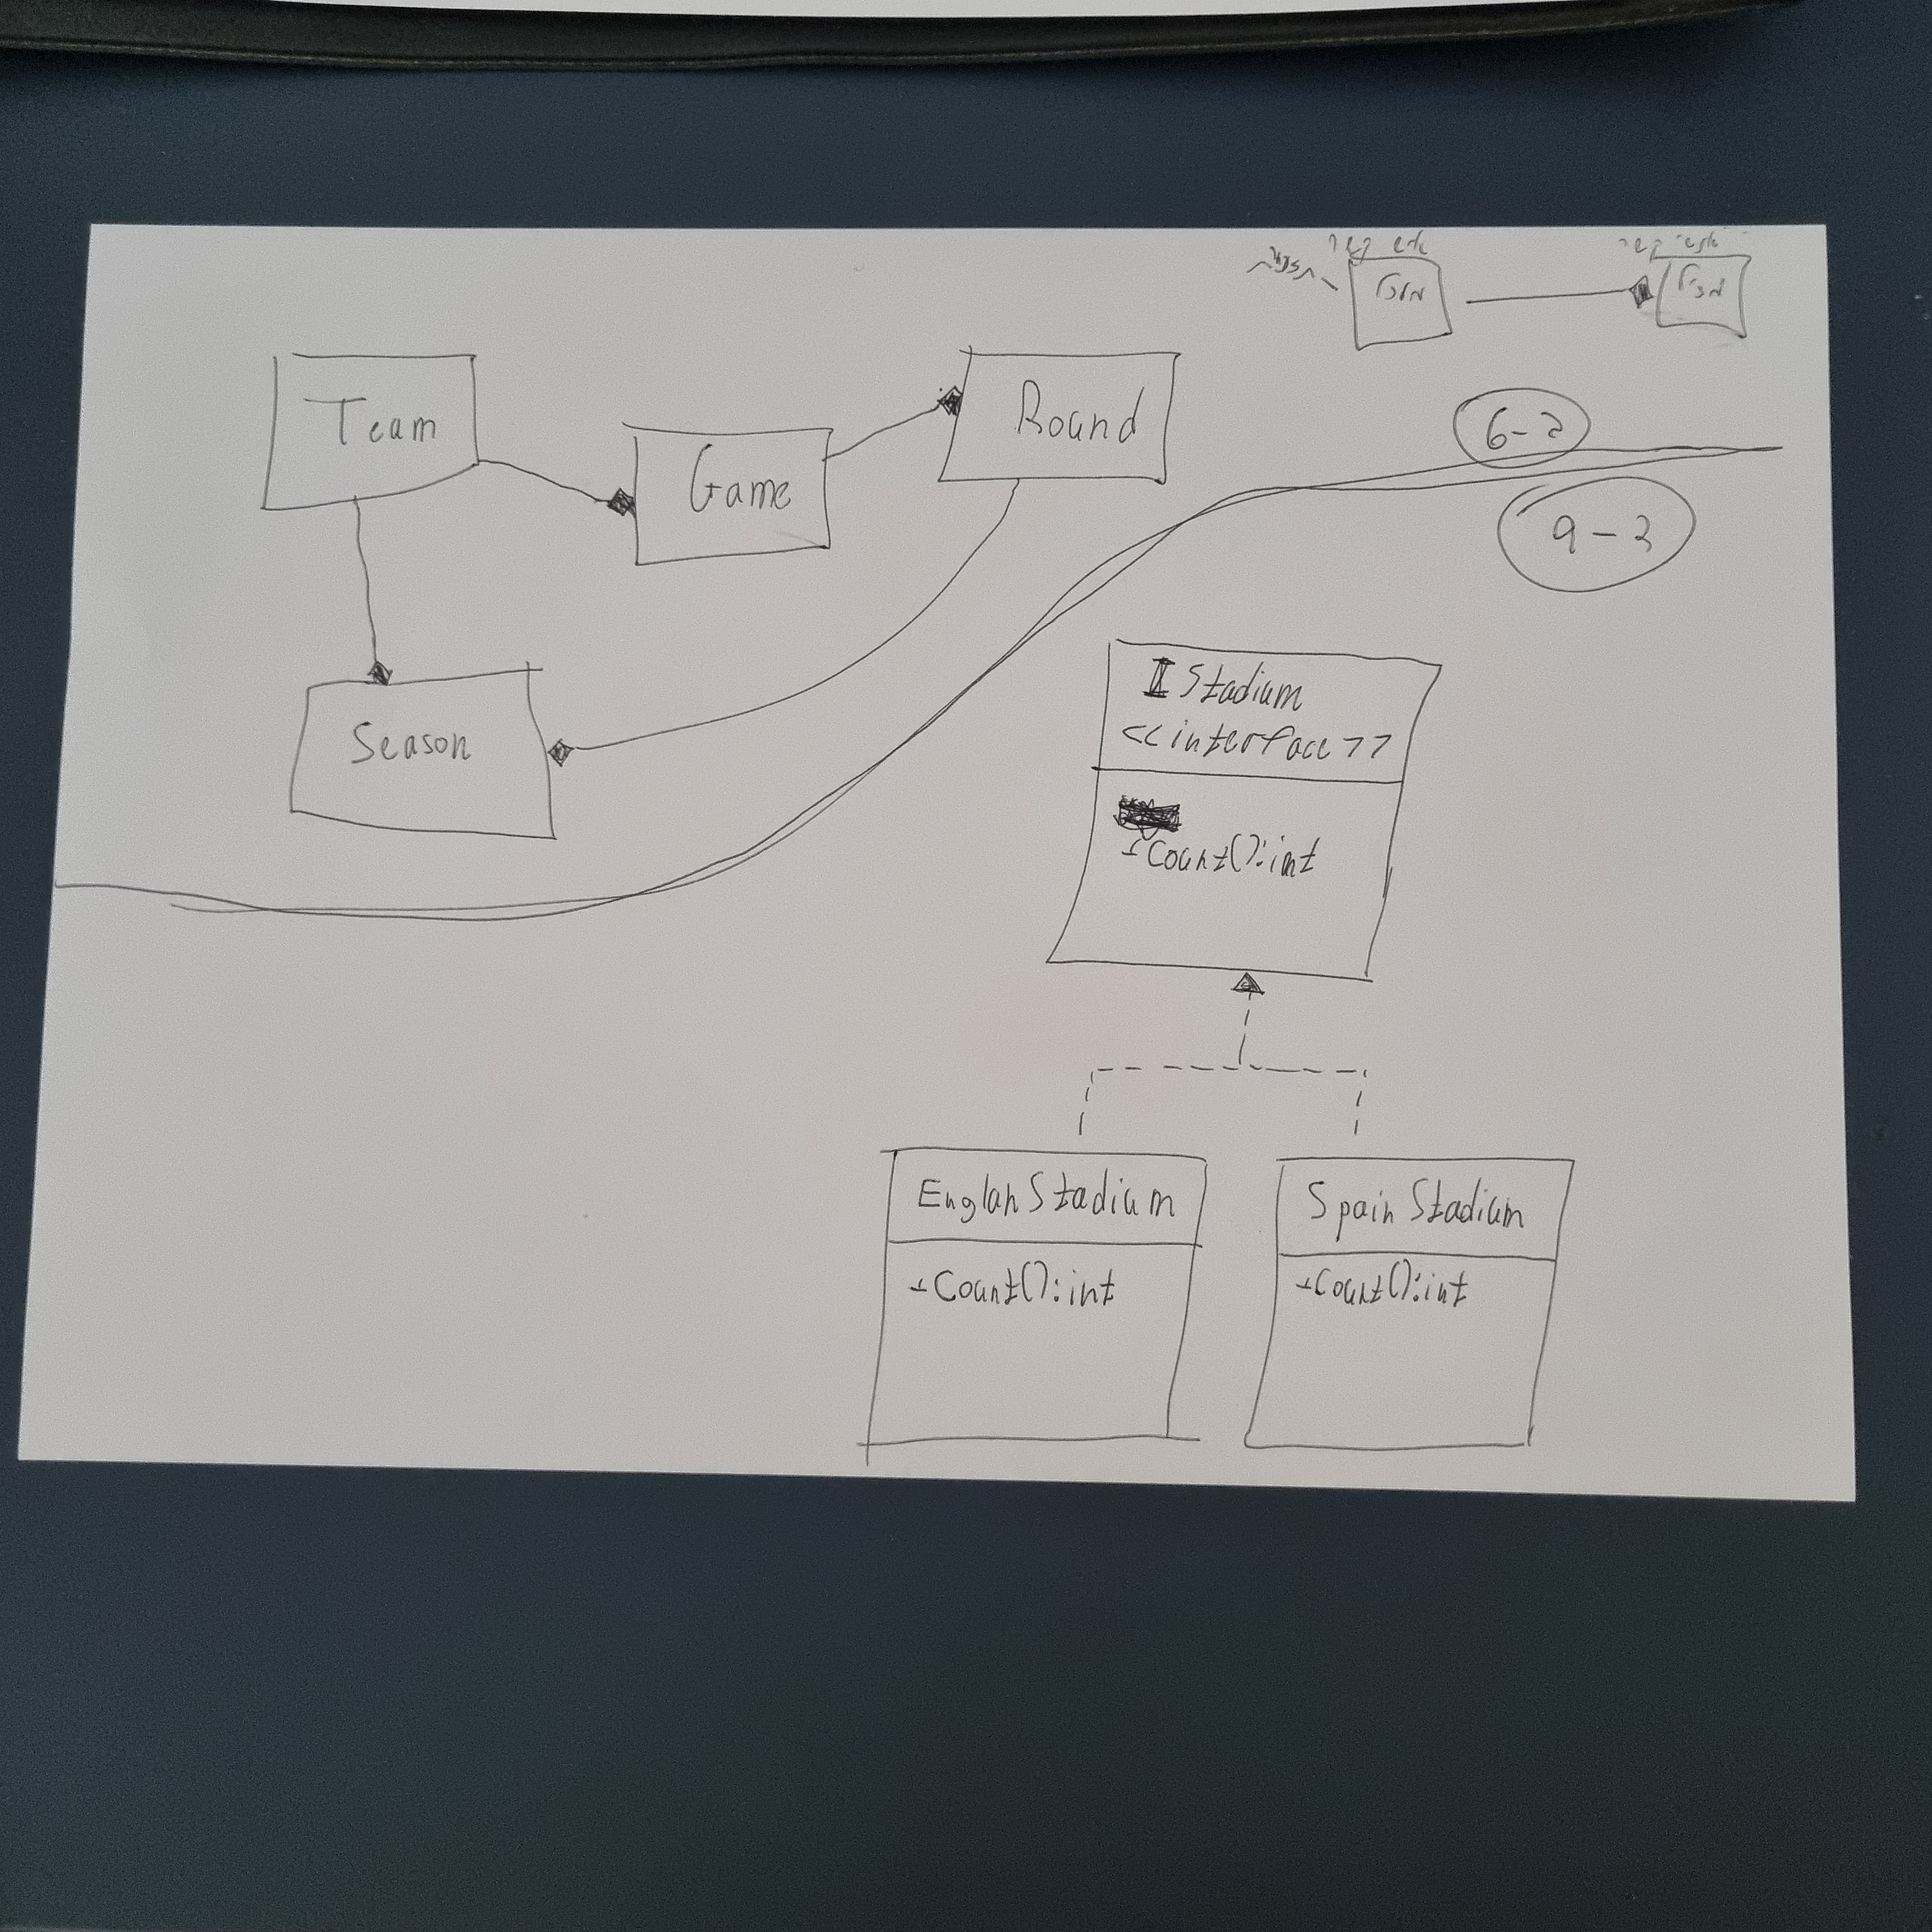 Team
Game
Round
Season
6-2
9-2
IStadium
<<interface>>
+Count():int
EnglanStadium
+Count():int
SpainStadium
+Count():int